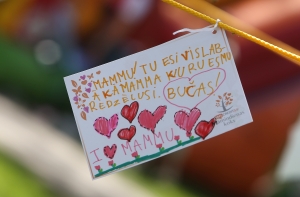 MAMMU! TU ESI VISLAB-
ĀKĀ MAMMA KURU ESMU
REDZĒJUSI. BUČAS!
I MAMMU